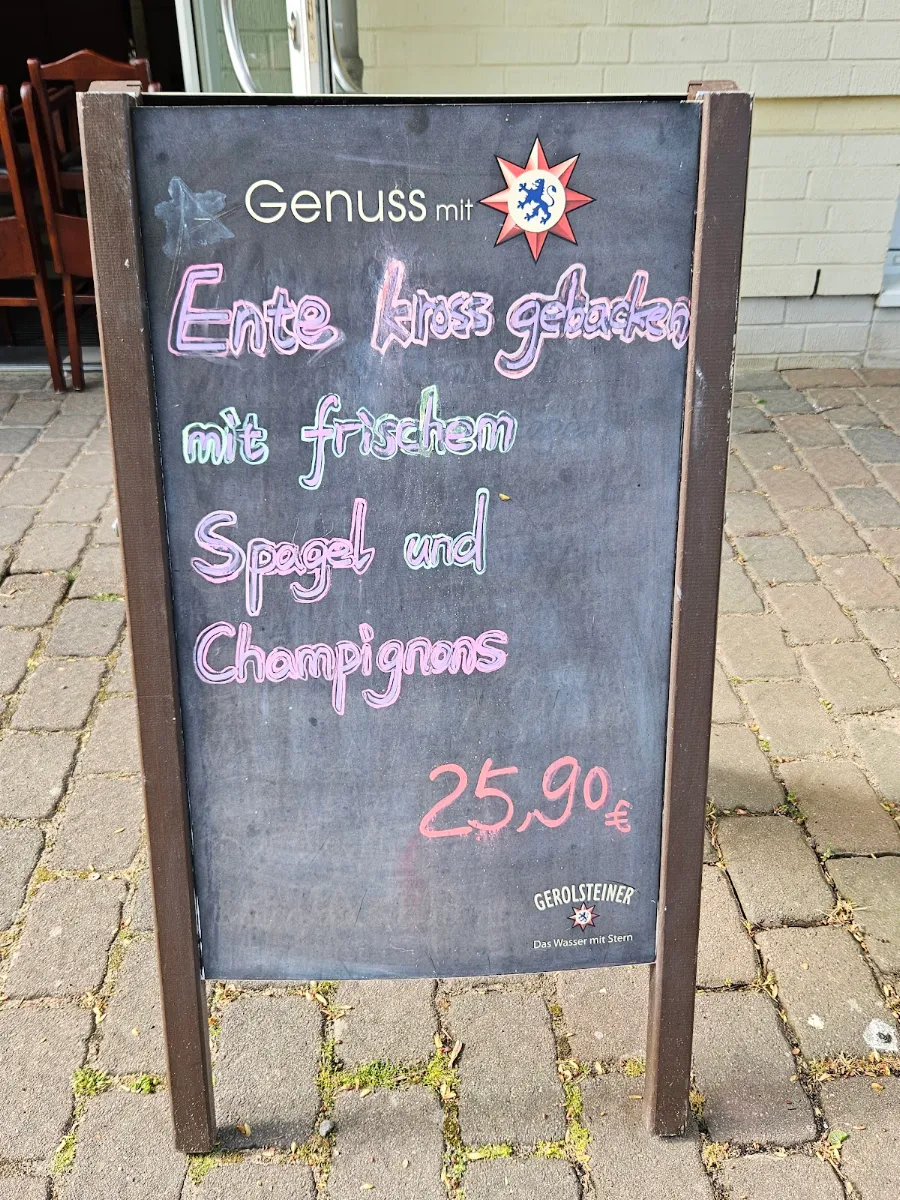 Genuss mit
Ente kross gebacken
mit frischem
Spagel und
Champignons
25,90 €
GEROLSTEINER
Das Wasser mit Stern